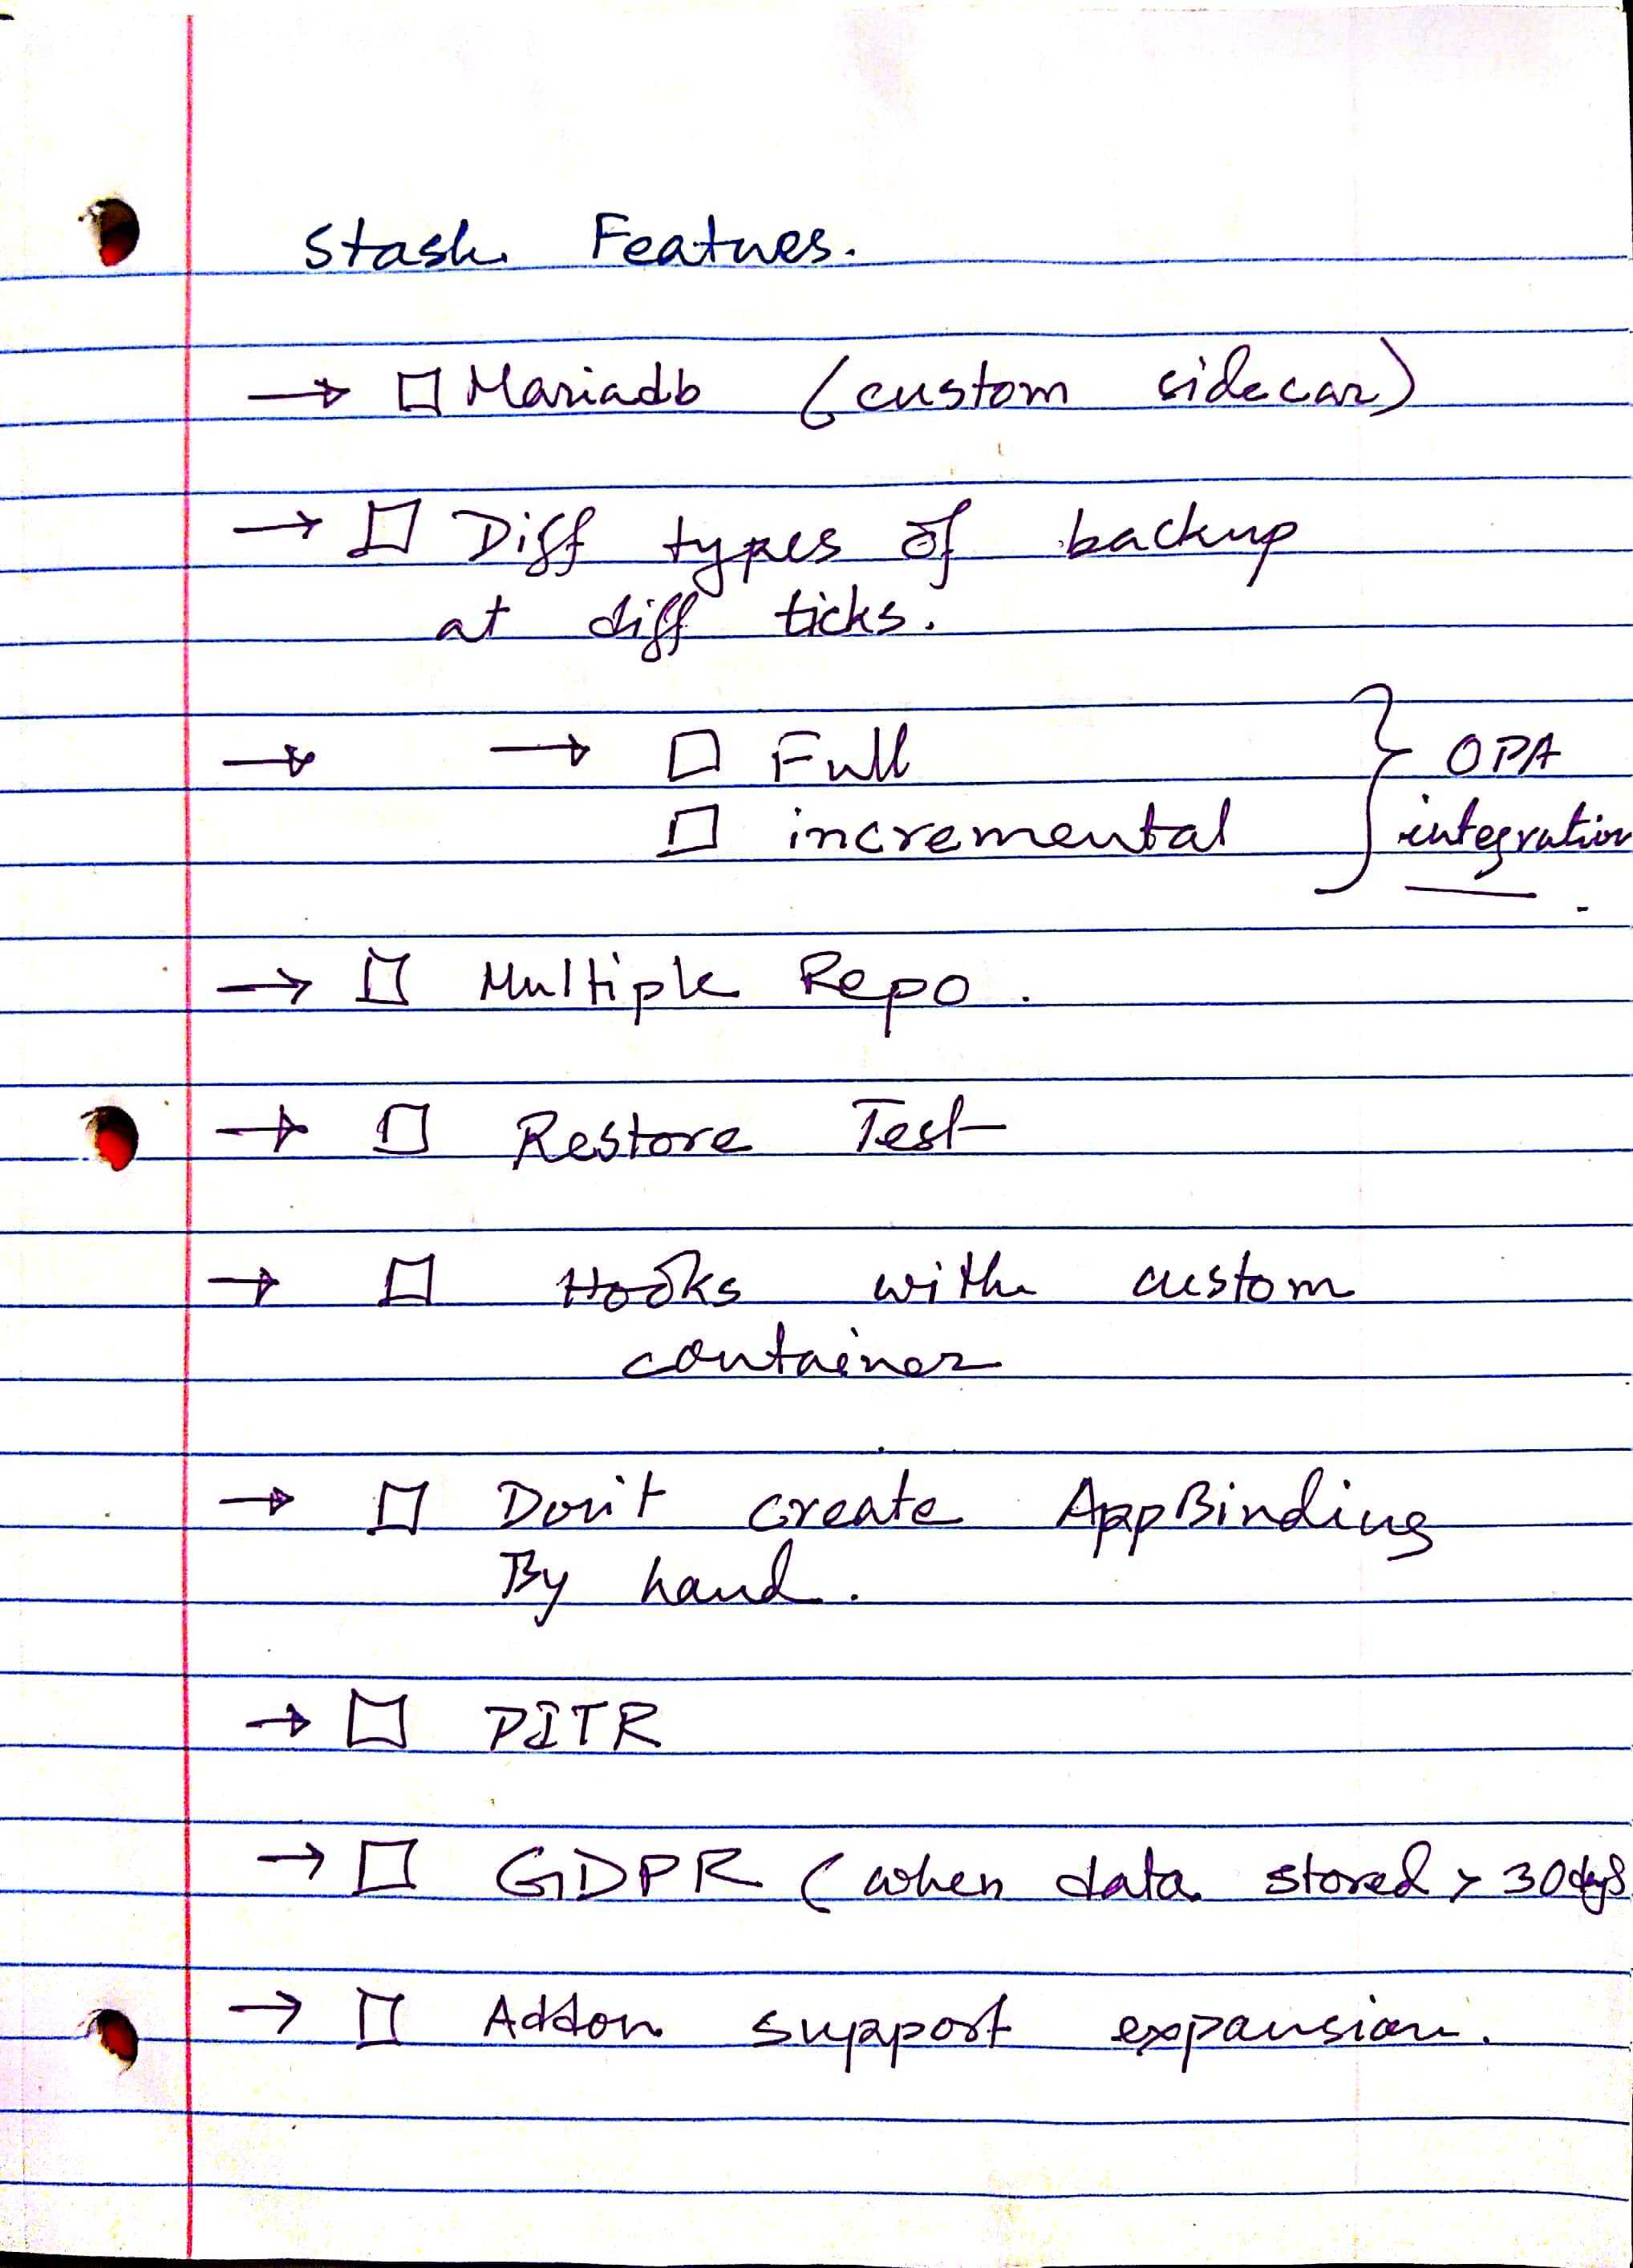 Stash Features.
→ □ Mariadb (custom sidecar)
→ □ Diff types of backup
at diff ticks.
→ → □ Full } OPA
□ incremental integration
→ □ Multiple Repo.
→ □ Restore Test
→ □ Hooks with custom
container
→ □ Don't create AppBinding
By hand.
→ □ PITR
→ □ GDPR (when data stored > 30 days
→ □ Addon support expansion.